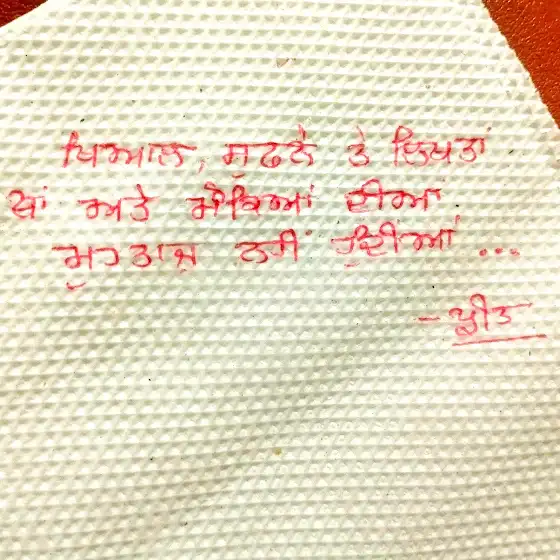 ਖਿਆਲ, ਸੁਫਨੇ ਤੇ ਲਿਖਤਾਂ
ਥਾਂ ਅਤੇ ਮੌਕਿਆਂ ਦੀਆਂ
ਮੁਹਤਾਜ਼ ਨਹੀਂ ਹੁੰਦੀਆਂ ...
- ਪ੍ਰੀਤ